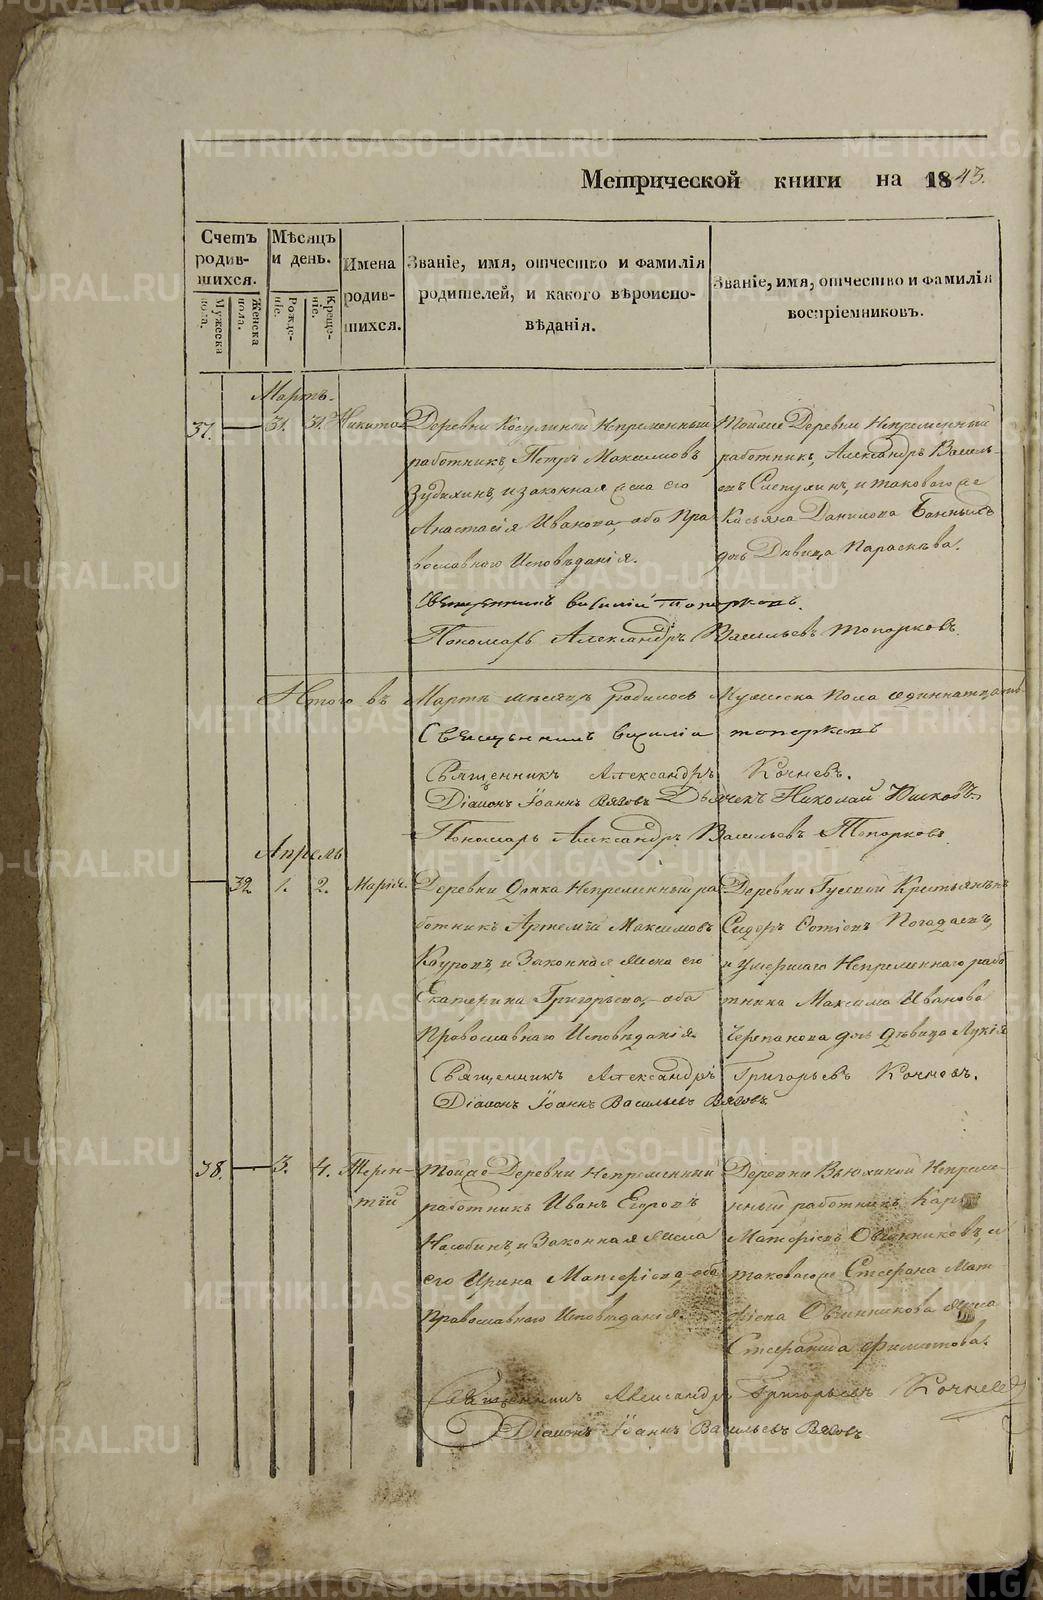 Метрической книги на 1843.
Счетъ родившихся.
Мужеска пола.
Женска пола.
Мѣсяцъ и день.
Рожденіе.
Крещеніе.
Имена родившихся.
Званіе, имя, отчество и фамилія родителей, и какого вѣроисповѣданія.
Званіе, имя, отчество и фамилія воспріемниковъ.
Мартъ.
37. — 31. 31. Никита
Деревни Косулиной Непременный
работникъ, Петръ Максимовъ
Зудихинъ, и законная жена его
Анастасія Иванова, оба Пра-
вославнаго Исповѣданія.
Тойже Деревни Непременный
работникъ, Александръ Василь-
евъ Слепухинъ, и таковагоже
Касьяна Данилова Банныхъ
дочь Дѣвица Параскѣва.
Священникъ Василій Топорковъ.
Пономарь Александръ Васильевъ Топорковъ.
Итого въ Мартѣ мѣсяцѣ родилось Мужеска Пола одиннатцать
Священникъ Василій Топорковъ
Священникъ Александръ Кочневъ.
Діаконъ Іоаннъ Дьячекъ Николай
Пономарь Александръ Васильевъ Топорковъ
Апрель
— 32. 1. 2. Марія.
Деревни Непременный ра-
ботникъ Артемій Максимовъ
и Законная жена его
Екатерина Григорьева, оба
Православнаго Исповѣданія.
Деревни Гусевой Крестьянинъ
Сидоръ Фотіевъ Погадаевъ,
и умершаго Непременнаго рабо-
тника Максима Иванова
Черепанова дочь дѣвица Лукія
Священникъ Александръ Григорьевъ Кочневъ.
Діаконъ Іоаннъ Васильевъ
38. — 3. 4. Терен-
тій
Тойже Деревни Непременный
работникъ Иванъ Егоровъ
и Законная жена
его Ирина Матфіева, оба
Православнаго Исповѣданія.
Деревни Вьюхиной Непреме-
нный работникъ Карпъ
Матфіевъ Овчинниковъ, и
таковагоже Стефана Мат-
фіева Овчинникова жена
Стефанида Филипова.
Священникъ Александръ Григорьевъ Кочневъ
Діаконъ Іоаннъ Васильевъ
METRIKI.GASO-URAL.RU